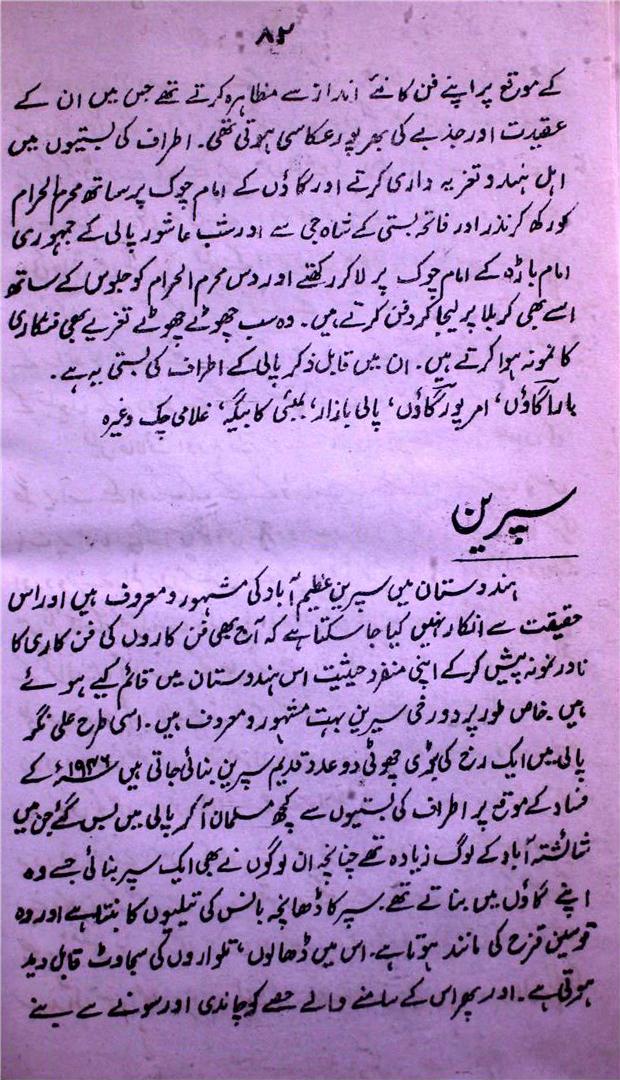 ۸۲
کے موقع پر اپنے فن کا نئے انداز سے مظاہرہ کرتے تھے جس میں ان کے
عقیدت اور جذبے کی بھرپور عکاسی ہوتی تھی۔ اطراف کی بستیوں میں
اہل ہنود تعزیہ داری کرتے اور گاؤں کے امام چوک پر ساتھ محرم الحرام
کو رکھا کر نذر اور فاتحہ بستی کے شاہ جی سے اور شب عاشور پالی کے جمہوری
امام باڑہ کے امام چوک پر لا کر رکھتے اور دس محرم الحرام کو جلوس کے ساتھ
اسے بھی کربلا پر لیجا کر دفن کرتے ہیں۔ وہ سب چھوٹے چھوٹے تعزیے بھی فنکاری
کا نمونہ ہوا کرتے ہیں۔ ان میں قابل ذکر پالی کے اطراف کی بستی یہ ہے۔
بارا گاؤں، امرپور گاؤں، پالی بازار، بمبئی کا بیگہ، غلامی چک وغیرہ
سپریں
ہندوستان میں سپریں عظیم آباد کی مشہور و معروف ہیں اور اس
حقیقت سے انکار نہیں کیا جا سکتا ہے کہ آج بھی فن کاروں کی فن کاری کا
نادر نمونہ پیش کر کے اپنی منفرد حیثیت اس ہندوستان میں قائم کیے ہوئے
ہیں۔ خاص طور پر دو رخی سپریں بہت مشہور و معروف ہیں۔ اسی طرح علی نگر
پالی میں ایک رخ کی بڑی چھوٹی دو عدد قدیم سپریں بنائی جاتی ہیں ۱۹۴۶ء کے
فساد کے موقع پر اطراف کی بستیوں سے کچھ مسلمان آ کر پالی میں بس گئے جن میں
شائستہ آباد کے لوگ زیادہ تھے چنانچہ ان لوگوں نے بھی ایک سپر بنائی جسے وہ
اپنے گاؤں میں بناتے تھے۔ سپر کا ڈھانچہ بانس کی تیلیوں کا بنتا ہے اور وہ
قوسین قزح کی مانند ہوتا ہے۔ اس میں ڈھالوں، تلواروں کی سجاوٹ قابل دید
ہوتی ہے۔ اور پھر اس کے سامنے والے حصے کو چاندی اور سونے سے بنے